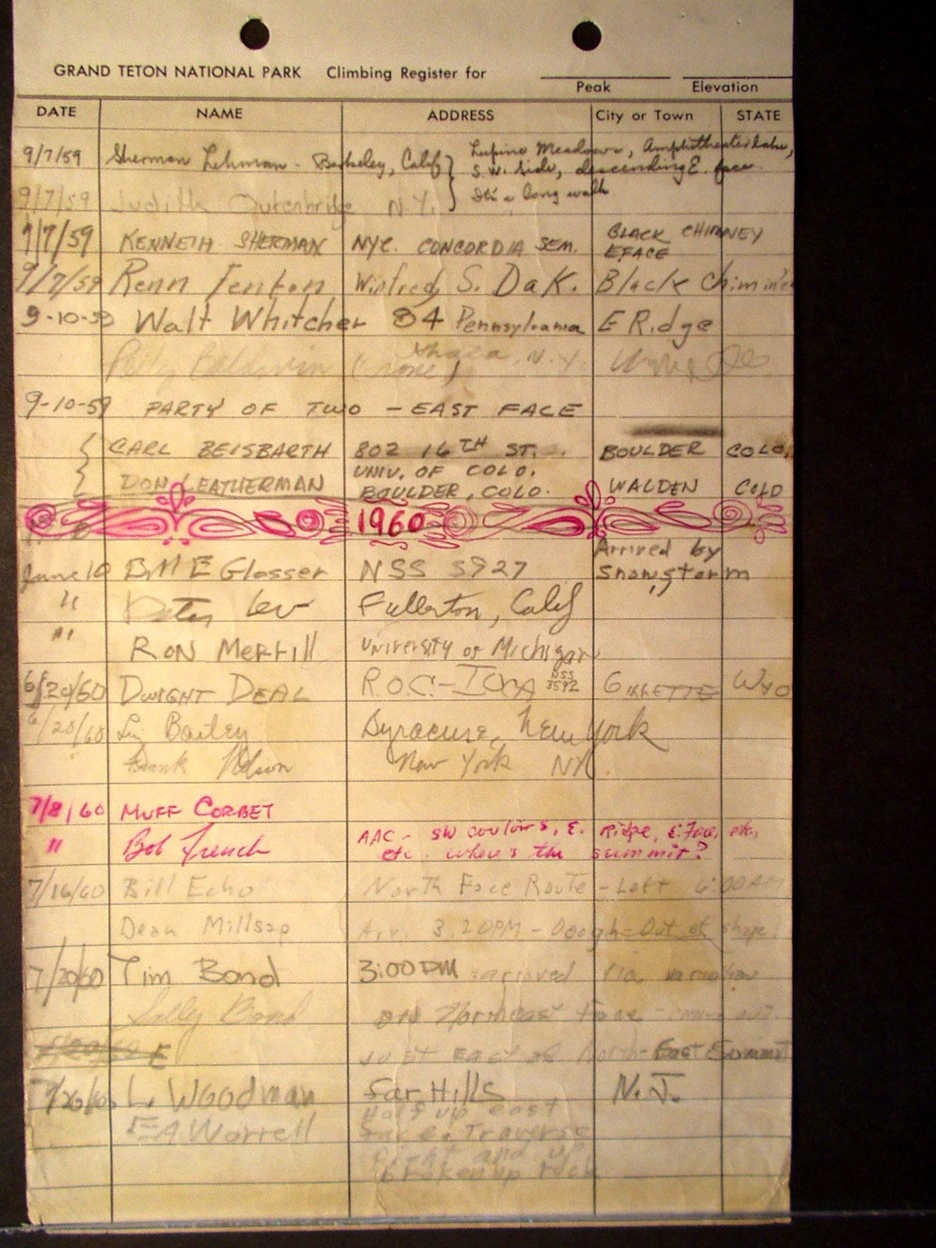 GRAND TETON NATIONAL PARK Climbing Register for
Peak Elevation
DATE NAME ADDRESS City or Town STATE
9/7/59 Sherman Lehman - Berkeley, Calif } Lupine Meadows, Amphitheater lake,
S.W. side, descending E. face.
It's a long walk
9/7/59 Judith Outenbridge N.Y.
9/7/59 KENNETH SHERMAN NYC. CONCORDIA SEM. BLACK CHIMNEY
EFACE
9/7/59 Renn Fenton Winfred, S. Dak. Black
9-10-59 Walt Whitcher 84 Pennsylvania E Ridge
Baldwin Ithaca, N.Y.
9-10-59 PARTY OF TWO - EAST FACE
{ CARL BEISBARTH 802 16TH ST. BOULDER COLO.
UNIV. OF COLO.
{ DON LEATHERMAN BOULDER, COLO. WALDEN COLO
1960
Arrived by
June 10 Bill E Glosser NSS 5927 snowstorm
" Peter Lev Fullerton, Calif
" RON MERRILL University of Michigan
6/20/60 DWIGHT DEAL NSS 3592 GILLETTE WYO
6/20/60 Bailey Syracuse, New York
" New York NY.
7/8/60 MUFF CORBET
" Bob French AAC - SW couloirs, E. Ridge, E. Face, etc,
etc. where's the summit?
7/16/60 Bill Echo North Face Route - Left 6:00AM
Dean Millsap Arr. 3:20PM - Out of shape!
7/20/60 Tim Bond 3:00PM arrived via variation
Sally Bond on Northeast Face - came out
just east of North-East Summit
7/26/60 L. Woodman Far Hills N.J.
EA Worrell Half up east
Traverse
right and up
broken up rock